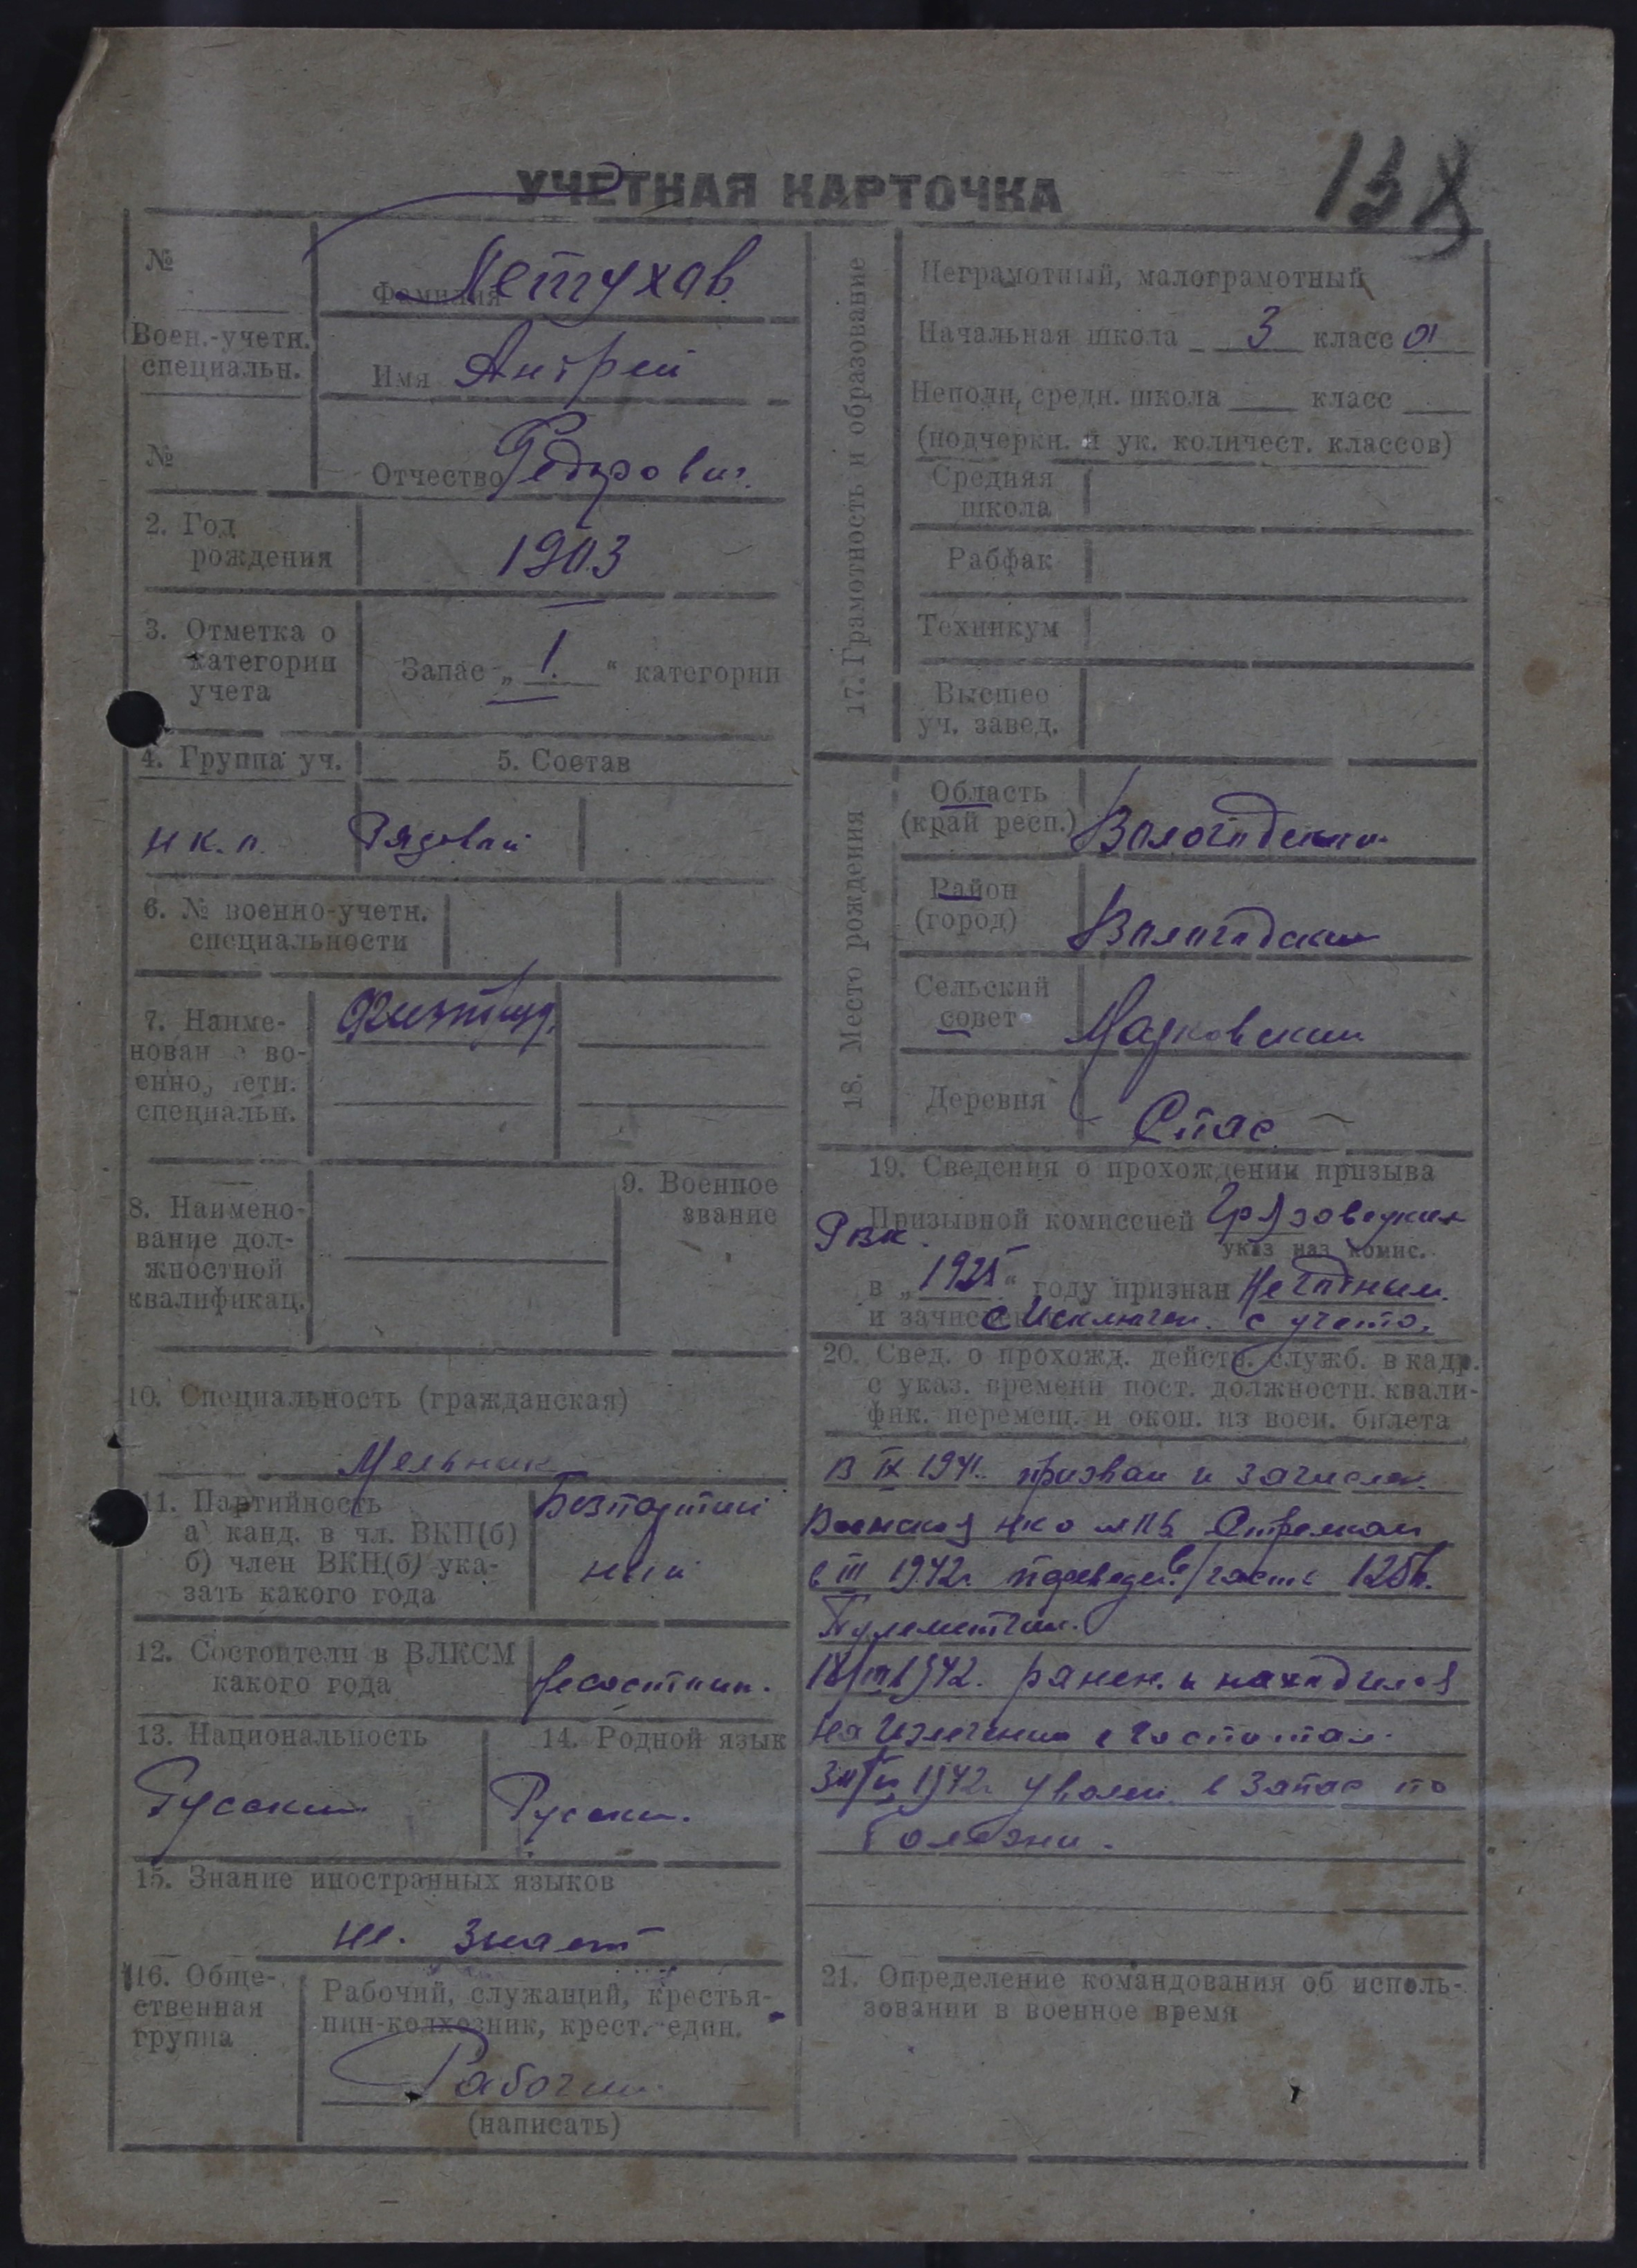 УЧЕТНАЯ КАРТОЧКА
138
№
Фамилия Петухов
Воен.-учетн.
специальн.
Имя Андрей
№
Отчество Федорович
2. Год
рождения
1903
3. Отметка о
категории
учета
Запас „ 1. “ категории
4. Группа уч.
5. Состав
Рядовой
6. № военно-учетн.
специальности
7. Наиме-
нование во-
енно-учетн.
специальн.
8. Наимено-
вание дол-
жностной
квалификац.
9. Военное
звание
10. Специальность (гражданская)
Мельник
11. Партийность
а) канд. в чл. ВКП(б)
б) член ВКП(б) ука-
зать какого года
Безпартий
ный
12. Состоит ли в ВЛКСМ
какого года
13. Национальность
Русский
14. Родной язык
Русский.
15. Знание иностранных языков
не. знает
16. Обще-
ственная
группа
Рабочий, служащий, крестья-
нин-колхозник, крест.-един.
Рабочий
(написать)
17. Грамотность и образование
Неграмотный, малограмотный
Начальная школа 3 класс а
Неполн. средн. школа класс
(подчеркн. и ук. количест. классов)
Средняя
школа
Рабфак
Техникум
Высшее
уч. завед.
18. Место рождения
Область
(край респ.)
Вологодская
Район
(город)
Вологодский
Сельский
совет
Марковский
Деревня
Спас
19. Сведения о прохождении призыва
Призывной комиссией Грязовецким
РВК.
указ наз комис.
в „1925“ году признан Негодным.
и зачислен с Исключен. с учета.
20. Свед. о прохожд. действ. служб. в кадр.
с указ. времени пост. должностн. квали-
фик. перемещ. и окон. из воен. билета
В IX 1941. призван и зачислен.
Стрелком
с III 1942г. переведен в/часть
Пулеметчик.
18/III 1942. ранен. и находился
на Излечении в госпитале.
1942г. уволен в Запас по
болезни.
21. Определение командования об исполь-
зовании в военное время